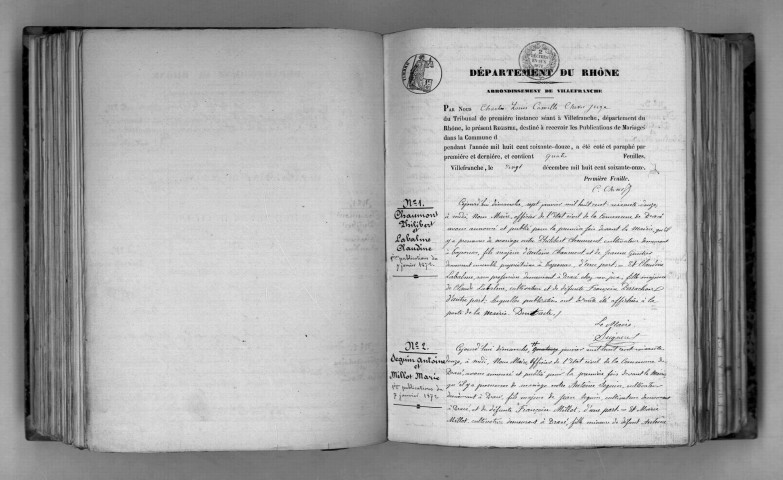 TIMBRE
DÉPARTEMENT DU RHÔNE
ARRONDISSEMENT DE VILLEFRANCHE
PAR NOUS Charles Louis Camille Juge
du Tribunal de première instance séant à Villefranche, département du
Rhône, le présent REGISTRE, destiné à recevoir les Publications de Mariages
dans la Commune d
pendant l'année mil huit cent soixante-douze, a été coté et paraphé par
première et dernière, et contient quatre Feuilles.
Villefranche, le vingt décembre mil huit cent soixante-onze.
Première Feuille.
N° 1.
Chaumont
Philibert
et
Labalme
Claudine
1re publication du
7 janvier 1872
Aujourd'hui dimanche, sept janvier mil huit cent soixante douze,
à midi, Nous Maire, officier de l'Etat civil de la Commune de Dracé
avons annoncé et publié pour la première fois devant la Mairie, qu'il
y a promesse de mariage entre Philibert Chaumont, cultivateur demeurant
à, fils majeur d'Antoine Chaumont et de
demeurant ensemble propriétaires à, d'une part. Et Claudine
Labalme, sans profession demeurant à Dracé chez son père, fille majeure
de Claude Labalme, cultivateur et de défunte Françoise
D'autre part, laquelle publication a été affichée à la
porte de la mairie. Dont acte.
Le Maire
N° 2.
Seguin Antoine
et
Millot Marie
1re publication du
7 janvier 1872
Aujourd'hui dimanche, janvier mil huit cent soixante
douze, à midi, Nous Maire, Officier de l'Etat civil de la Commune de
Dracé, avons annoncé et publié pour la première fois devant la Mairie,
qu'il y a promesse de mariage entre Antoine Seguin, cultivateur
demeurant à Dracé, fils majeur de Seguin, cultivateur demeurant
à Dracé, et de défunte Françoise Millot, d'une part. Et Marie
Millot, cultivatrice demeurant à Dracé, fille mineure de défunt Antoine